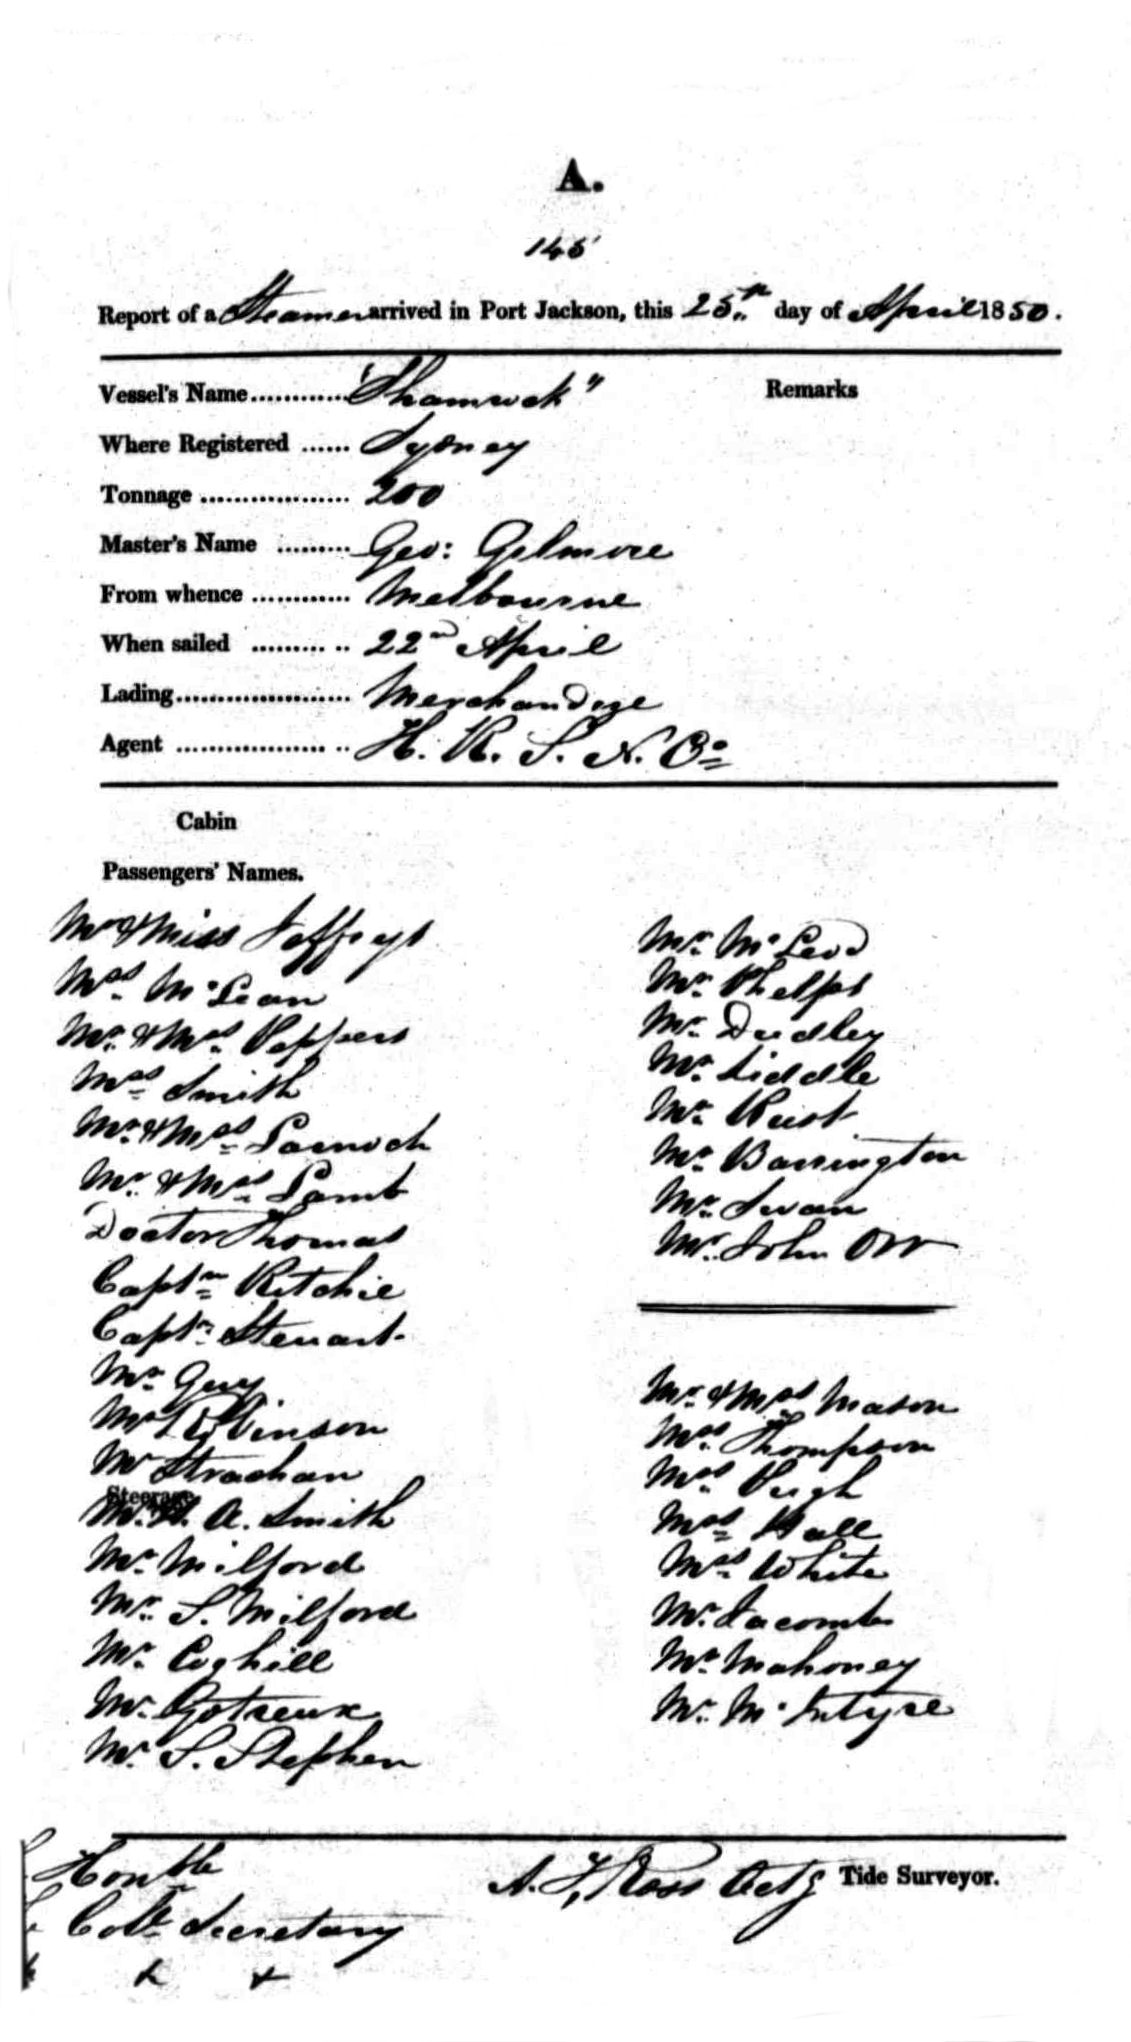 A.
145
Report of a Steamer arrived in Port Jackson, this 25th day of April 1850.
Vessel's Name............ "Shamrock"
Remarks
Where Registered ...... Sydney
Tonnage .................. 200
Master's Name ......... Geo: Gilmore
From whence ............ Melbourne
When sailed ......... .. 22nd April
Lading..................... Merchandize
Agent .................. .. H. R. S. N. Co
Cabin
Passengers' Names.
Mr & Miss Jeffreys
Mrs McLean
Mr & Mrs Peppers
Mrs Smith
Mr & Mrs
Mr & Mrs Lamb
Doctor Thomas
Captn Ritchie
Captn Stewart
Mr Guy
Mr Robinson
Mr Strachan
Steerage
Mr. A. Smith
Mr Milford
Mr S. Milford
Mr Coghill
Mr Gotreux
Mr S. Stephen
Mr McLeod
Mr Phelps
Mr Dudley
Mr Liddle
Mr
Mr Barrington
Mr Swan
Mr John Orr
Mr & Mrs Mason
Mrs Thompson
Mrs Pugh
Mrs Hall
Mrs White
Mr Lacomb
Mr Mahoney
Mr McIntyre
Honble
Coll Secretary
A. F. Ross Actg Tide Surveyor.